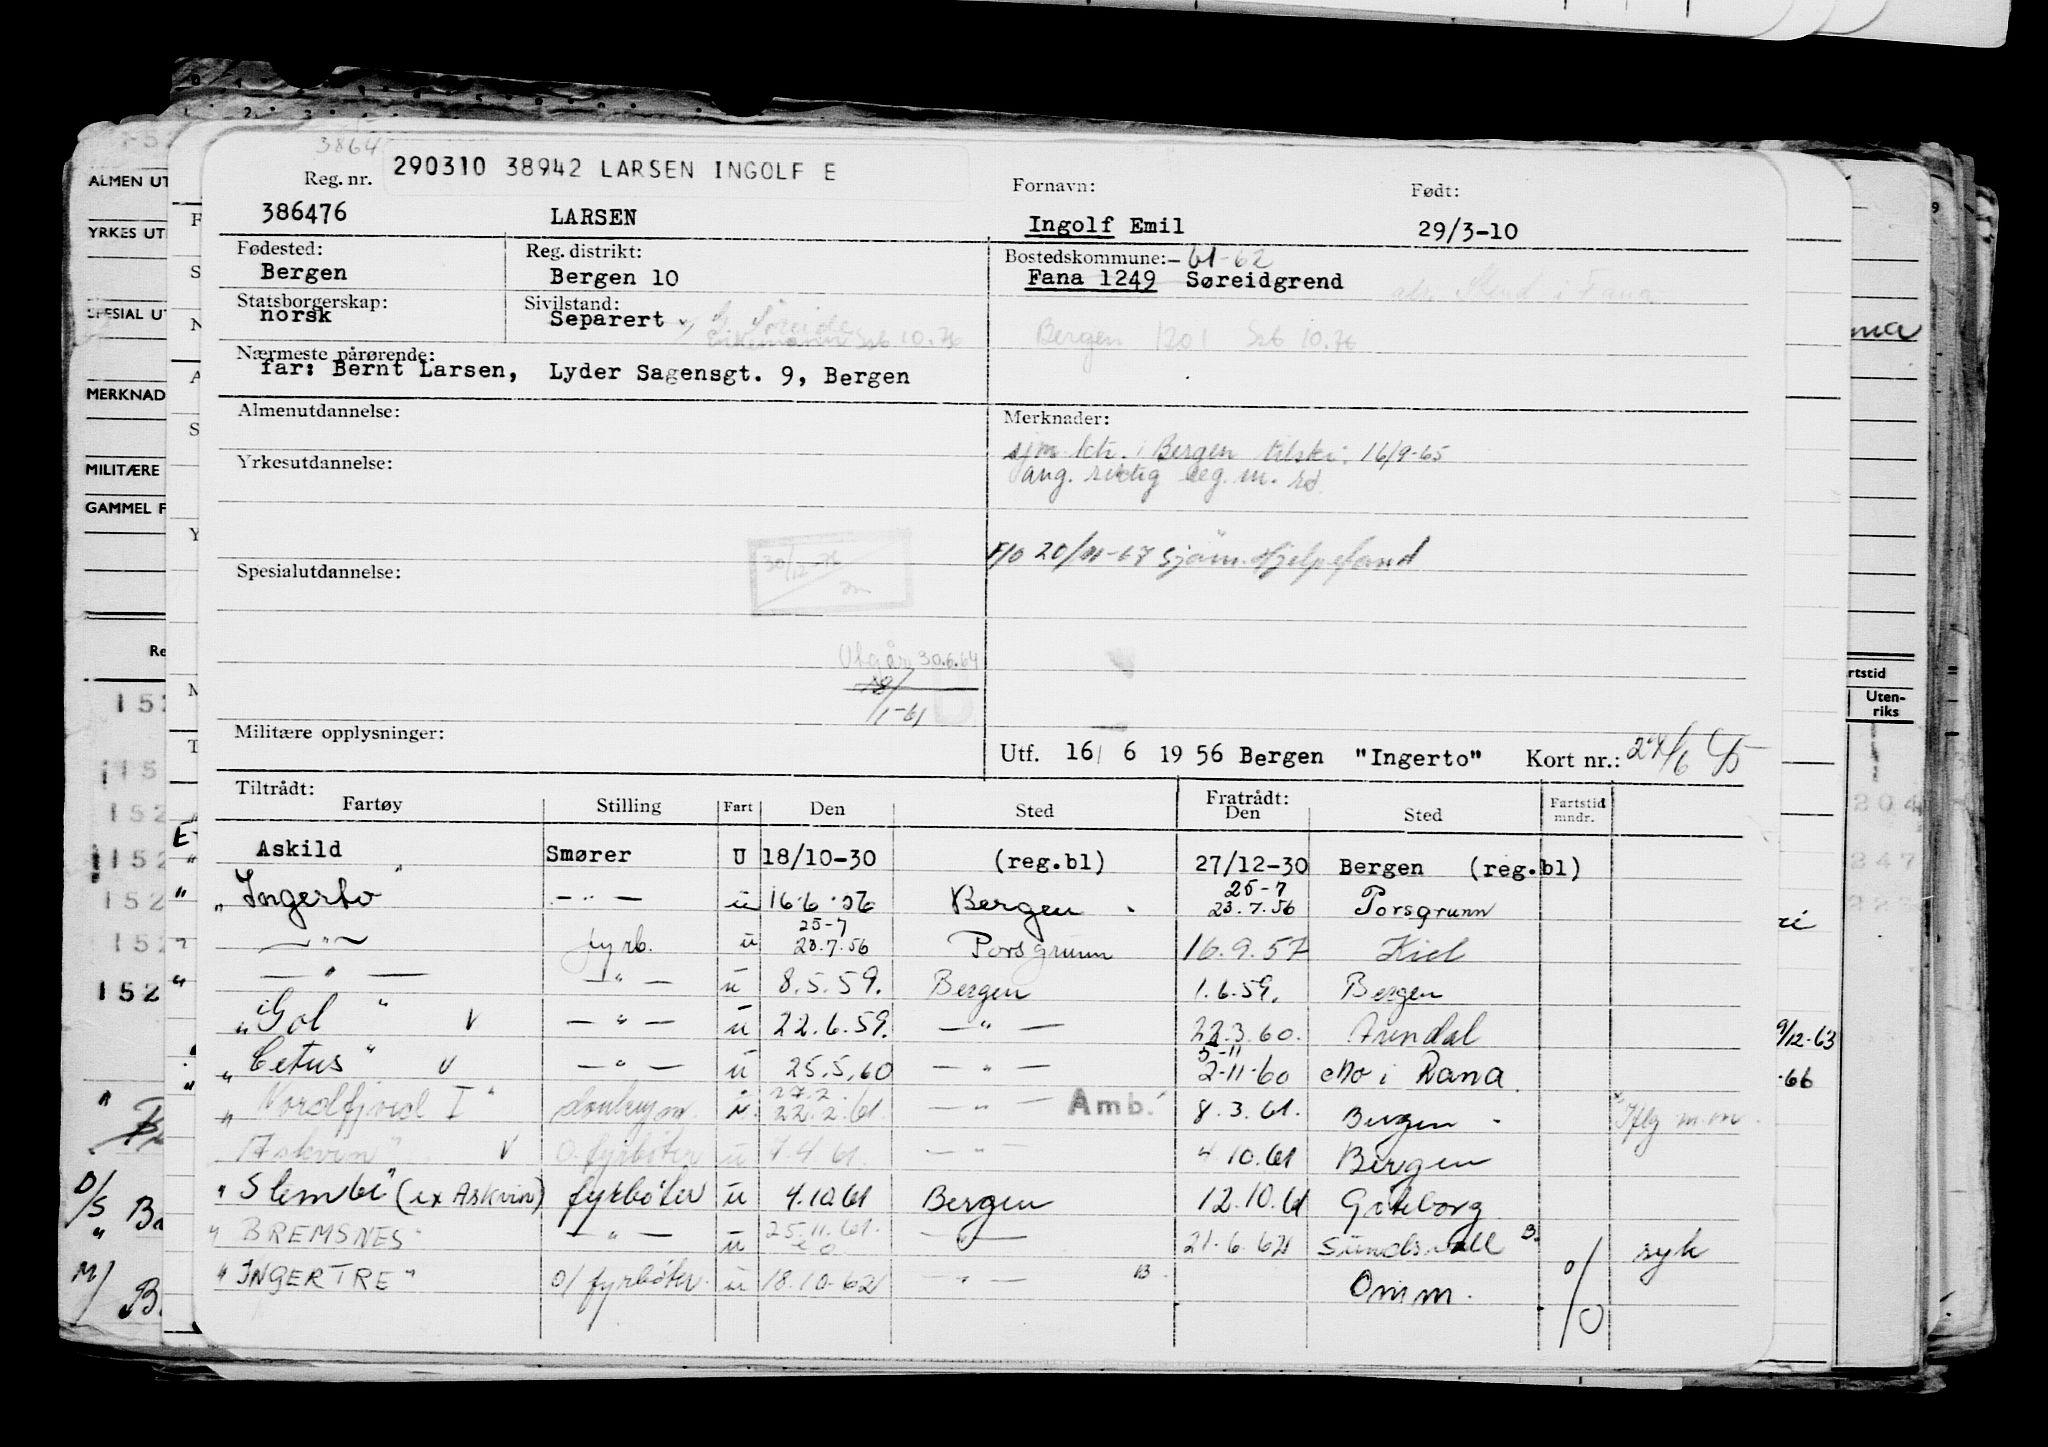 290310 38942 LARSEN INGOLF E
Reg. nr. Fornavn: Født:
386476 LARSEN Ingolf Emil 29/3-10
Fødested: Reg. distrikt: Bostedskommune: 61-62
Bergen Bergen 10 Fana 1249 Søreidgrend
Statsborgerskap: Sivilstand:
norsk Separert
Bergen 1201 10.76
Nærmeste pårørende:
far: Bernt Larsen, Lyder Sagensgt. 9, Bergen
Almenutdannelse: Merknader:
sjm. ktr. i Bergen tilskr. 16/9-65
ang. riktig leg. m.
Yrkesutdannelse:
F/O 20/11-67 Sjøm. Hjelpefond
Spesialutdannelse:
Utgår 30.6.64
18/1-61
Militære opplysninger:
Utf. 16/ 6 1956 Bergen "Ingerto" Kort nr.:
Tiltrådt: Fratrådt:
Fartøy Stilling Fart Den Sted Den Sted Fartstid mndr.
Askild Smører U 18/10-30 (reg.bl) 27/12-30 Bergen (reg.bl)
25-7
"Ingerto" — " — ü 16.6.56 Bergen 23.7.56 Porsgrunn
25-7
— " — fyrb. ü 23.7.56 Porsgrunn 16.9.57 Kiel
— " — — " — ü 8.5.59. Bergen 1.6.59. Bergen
"Gol" V — " — ü 22.6.59. — " — 22.3.60. Arendal
5-11
"Cetus" V — " — ü 25.5.60 — " — 2-11-60 Mo i Rana
27.2.
"Nordfjord I" donkeym. ü 22.2.61. — " — Amb. 8.3.61. Bergen
"Askvin" V O. fyrbøter ü 7.4.61. — " — 4.10.61 Bergen
"Slembe" (ex Askvin) fyrbøter ü 4.10.61 Bergen 12.10.61 Gøteborg
"BREMSNES" — " — ü 25.11.61. — " — 21.6.62 Sundsvall B. syk
"INGERTRE" O/ fyrbøter ü 18.10.62 — " — B. Omm.
ALMEN UT
YRKES UT
SPESIAL UT
MERKNAD
MILITÆRE
GAMMEL F
Uten-
riks
9/12-63
-66